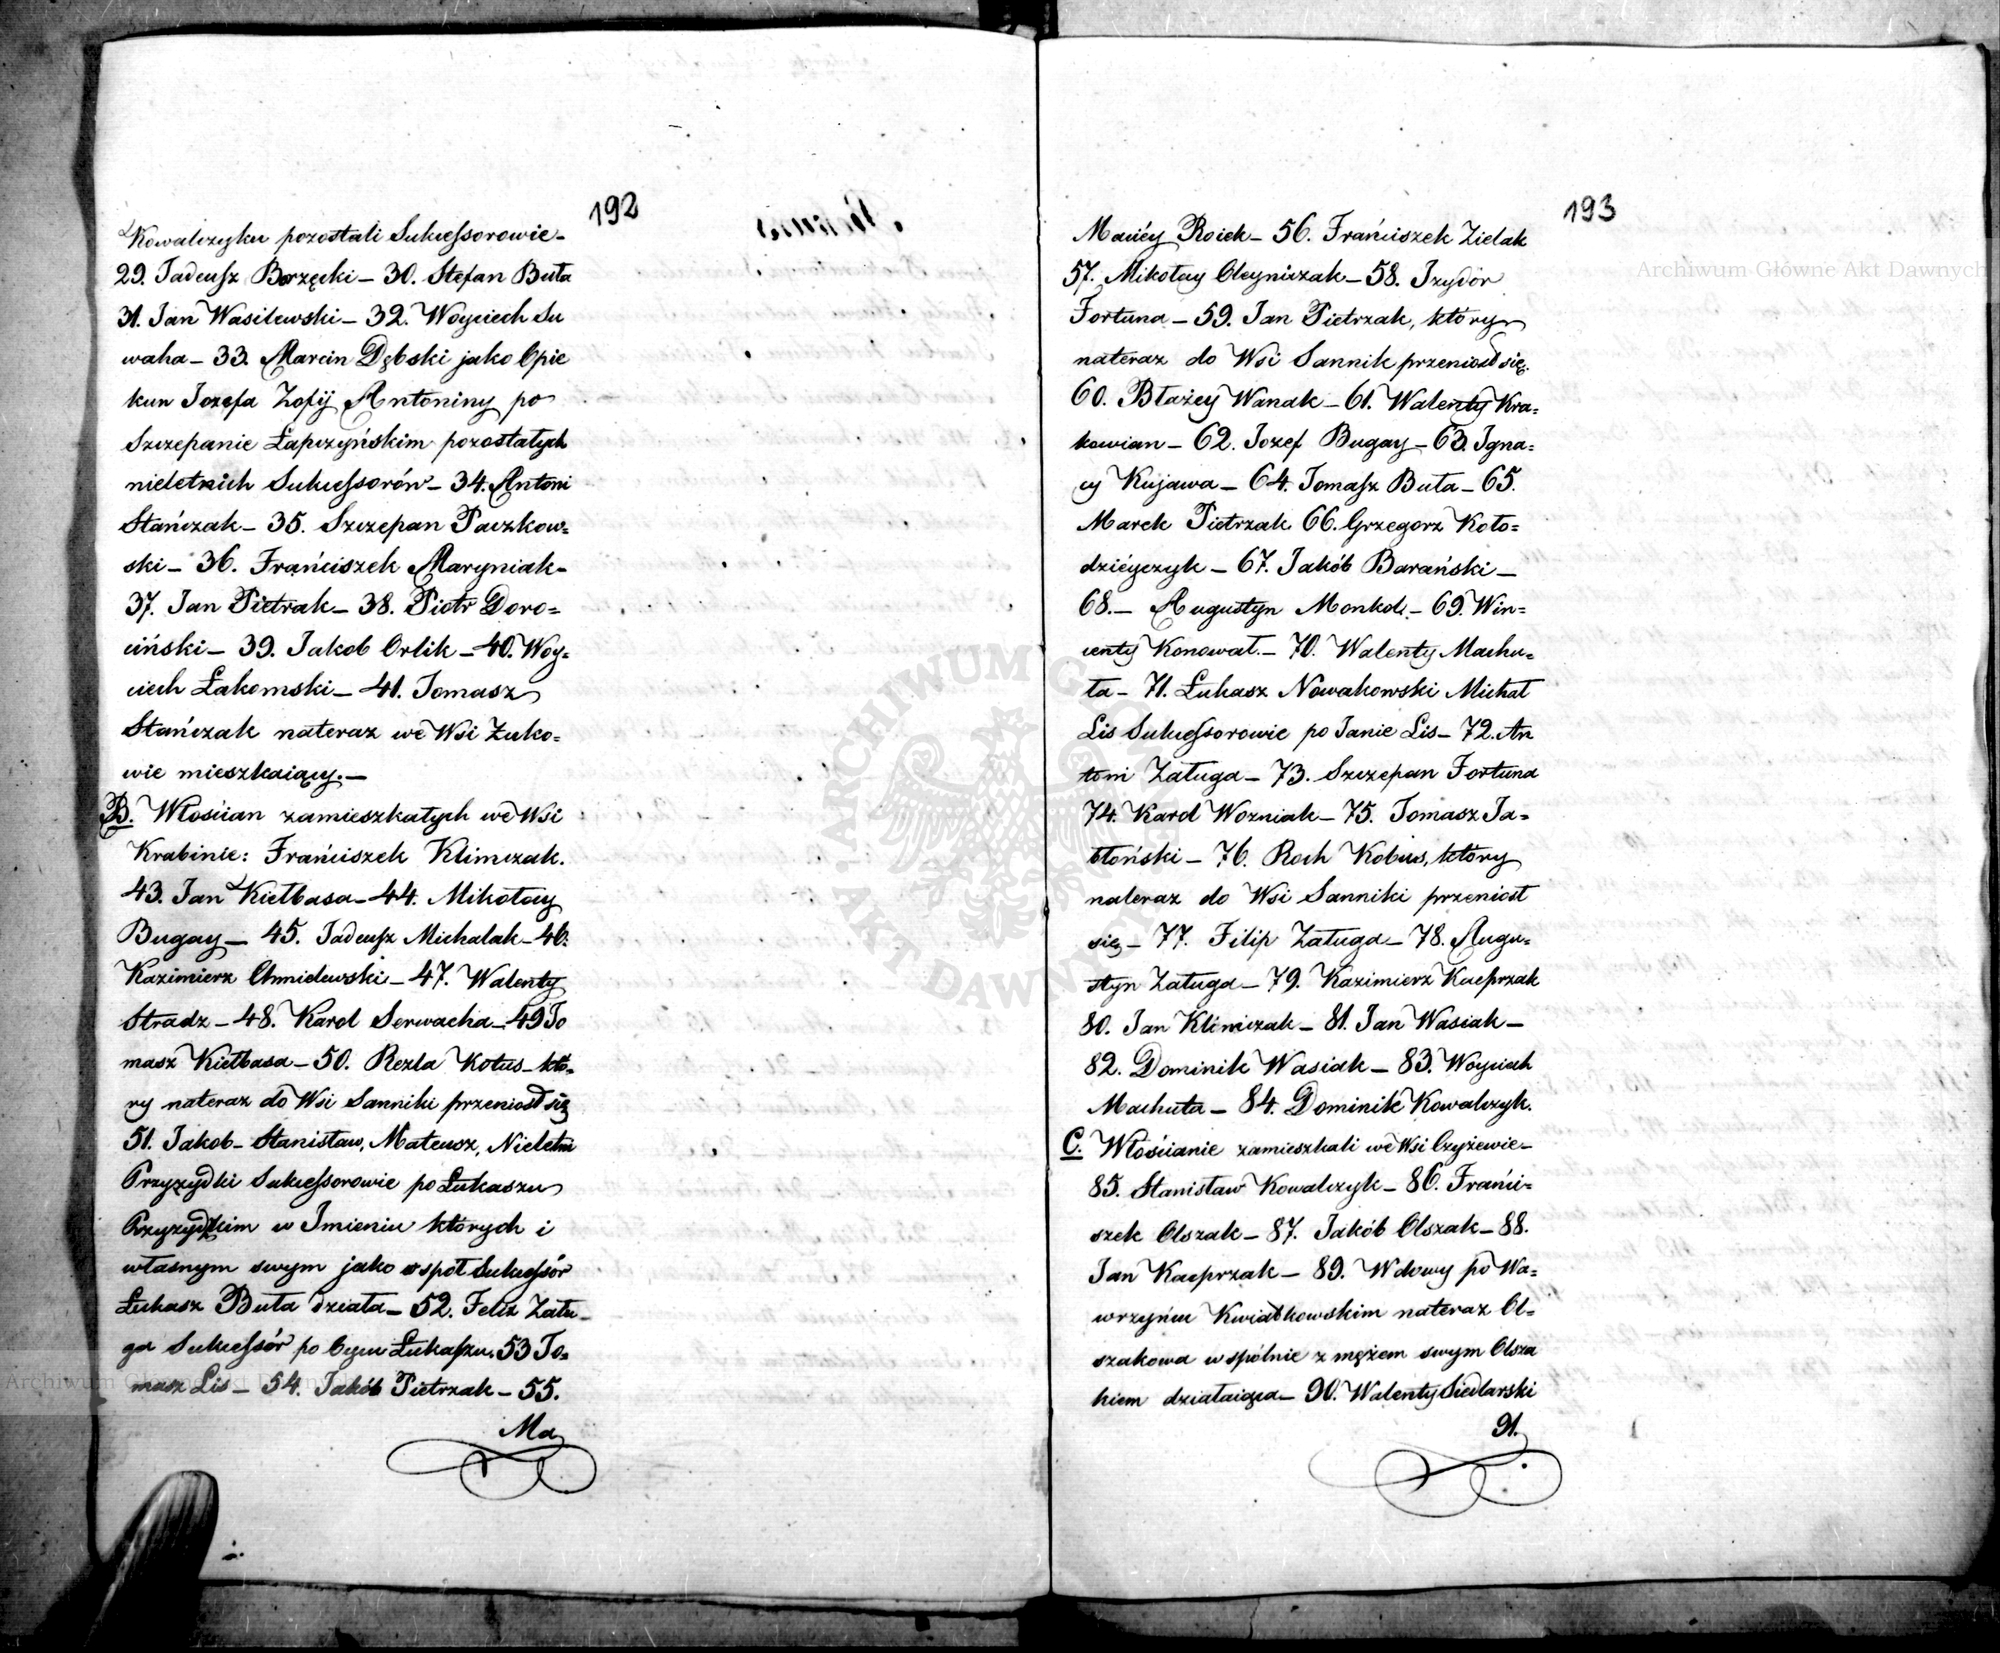 192
Kowalczyku pozostali Sukcessorowie –
29. Tadeusz Borzęcki – 30. Stefan Buła
31. Jan Wasilewski – 32. Woyciech Su
waha – 33. Marcin Dębski jako Opie
kun Jozefa Zofij Antoniny po
Szczepanie Łapczyńskim pozostałych
nieletnich Sukcessorów – 34. Antoni
Stańczak – 35. Szczepan Paczkow=
ski – 36. Franciszek Maryniak –
37. Jan Pietrak – 38. Piotr Doro=
ciński – 39. Jakob Orlik – 40. Woy=
ciech Łakomski – 41. Tomasz
Stańczak nateraz we Wsi Żuko=
wie mieszkaiący. –
B. Włościan zamieszkałych we Wsi
Krabinie: Franciszek Klimczak.
43. Jan Kiełbasa – 44. Mikołay
Bugay – 45. Tadeusz Michalak – 46.
Kazimierz Chmielewski – 47. Walenty
Stradz – 48. Karol Serwacha – 49 To
masz Kiełbasa – 50. Rezla Kotus – któ=
ry nateraz do Wsi Sanniki przeniosł się
51. Jakob – Stanisław, Mateusz, Nieletni
Przyzydki Sukcessorowie po Łukaszu
Przyzydkim w Imieniu których i
własnym swym jako wspoł Sukcessór
Łukasz Buła działa – 52. Felix Zału
ga Sukcessór po Oycu Łukaszu. 53 To=
masz Lis – 54. Jakób Pietrzak – 55.
Ma
193
Maciéy Rojek – 56. Franciszek Zielak
57. Mikołay Oleyniczak – 58. Izydór
Fortuna – 59. Jan Pietrzak, który
nateraz do Wsi Sannik przeniosł się.
60. Błażey Wanak – 61. Walenty Kra=
kowian – 62. Jozef Bugay – 63. Igna=
cy Kujawa – 64. Tomasz Buła – 65.
Marek Pietrzak 66. Grzegorz Koło=
dziéyczyk – 67. Jakób Barański –
68. – Augustyn Monkol – 69. Win=
centy Konował. – 70. Walenty Machu=
ła – 71. Łukasz Nowakowski Michał
Lis Sukcessorowie po Janie Lis – 72. An
toni Załuga – 73. Szczepan Fortuna
74. Karol Wozniak – 75. Tomasz Ja=
błoński – 76. Roch Kobus, który
nateraz do Wsi Sanniki przeniosł
się – 77. Filip Załuga – 78. Augu=
styn Załuga – 79. Kazimierz Kacprzak
80. Jan Klimczak – 81. Jan Wasiak –
82. Dominik Wasiak – 83. Woyciech
Machuła – 84. Dominik Kowalczyk.
C. Włościanie zamieszkali we Wsi Czyżewie –
85. Stanisław Kowalczyk – 86. Franci=
szek Olszak – 87. Jakób Olszak – 88.
Jan Kacprzak – 89. Wdowy po Wa=
wrzyńcu Kwiatkowskim nateraz Ol=
szakowa wspólnie z mężem swym Olsza
kiem działaiąca – 90. Walenty Siedlarski
91.
Archiwum Główne Akt Dawnych
ARCHIWUM GŁÓWNE AKT DAWNYCH